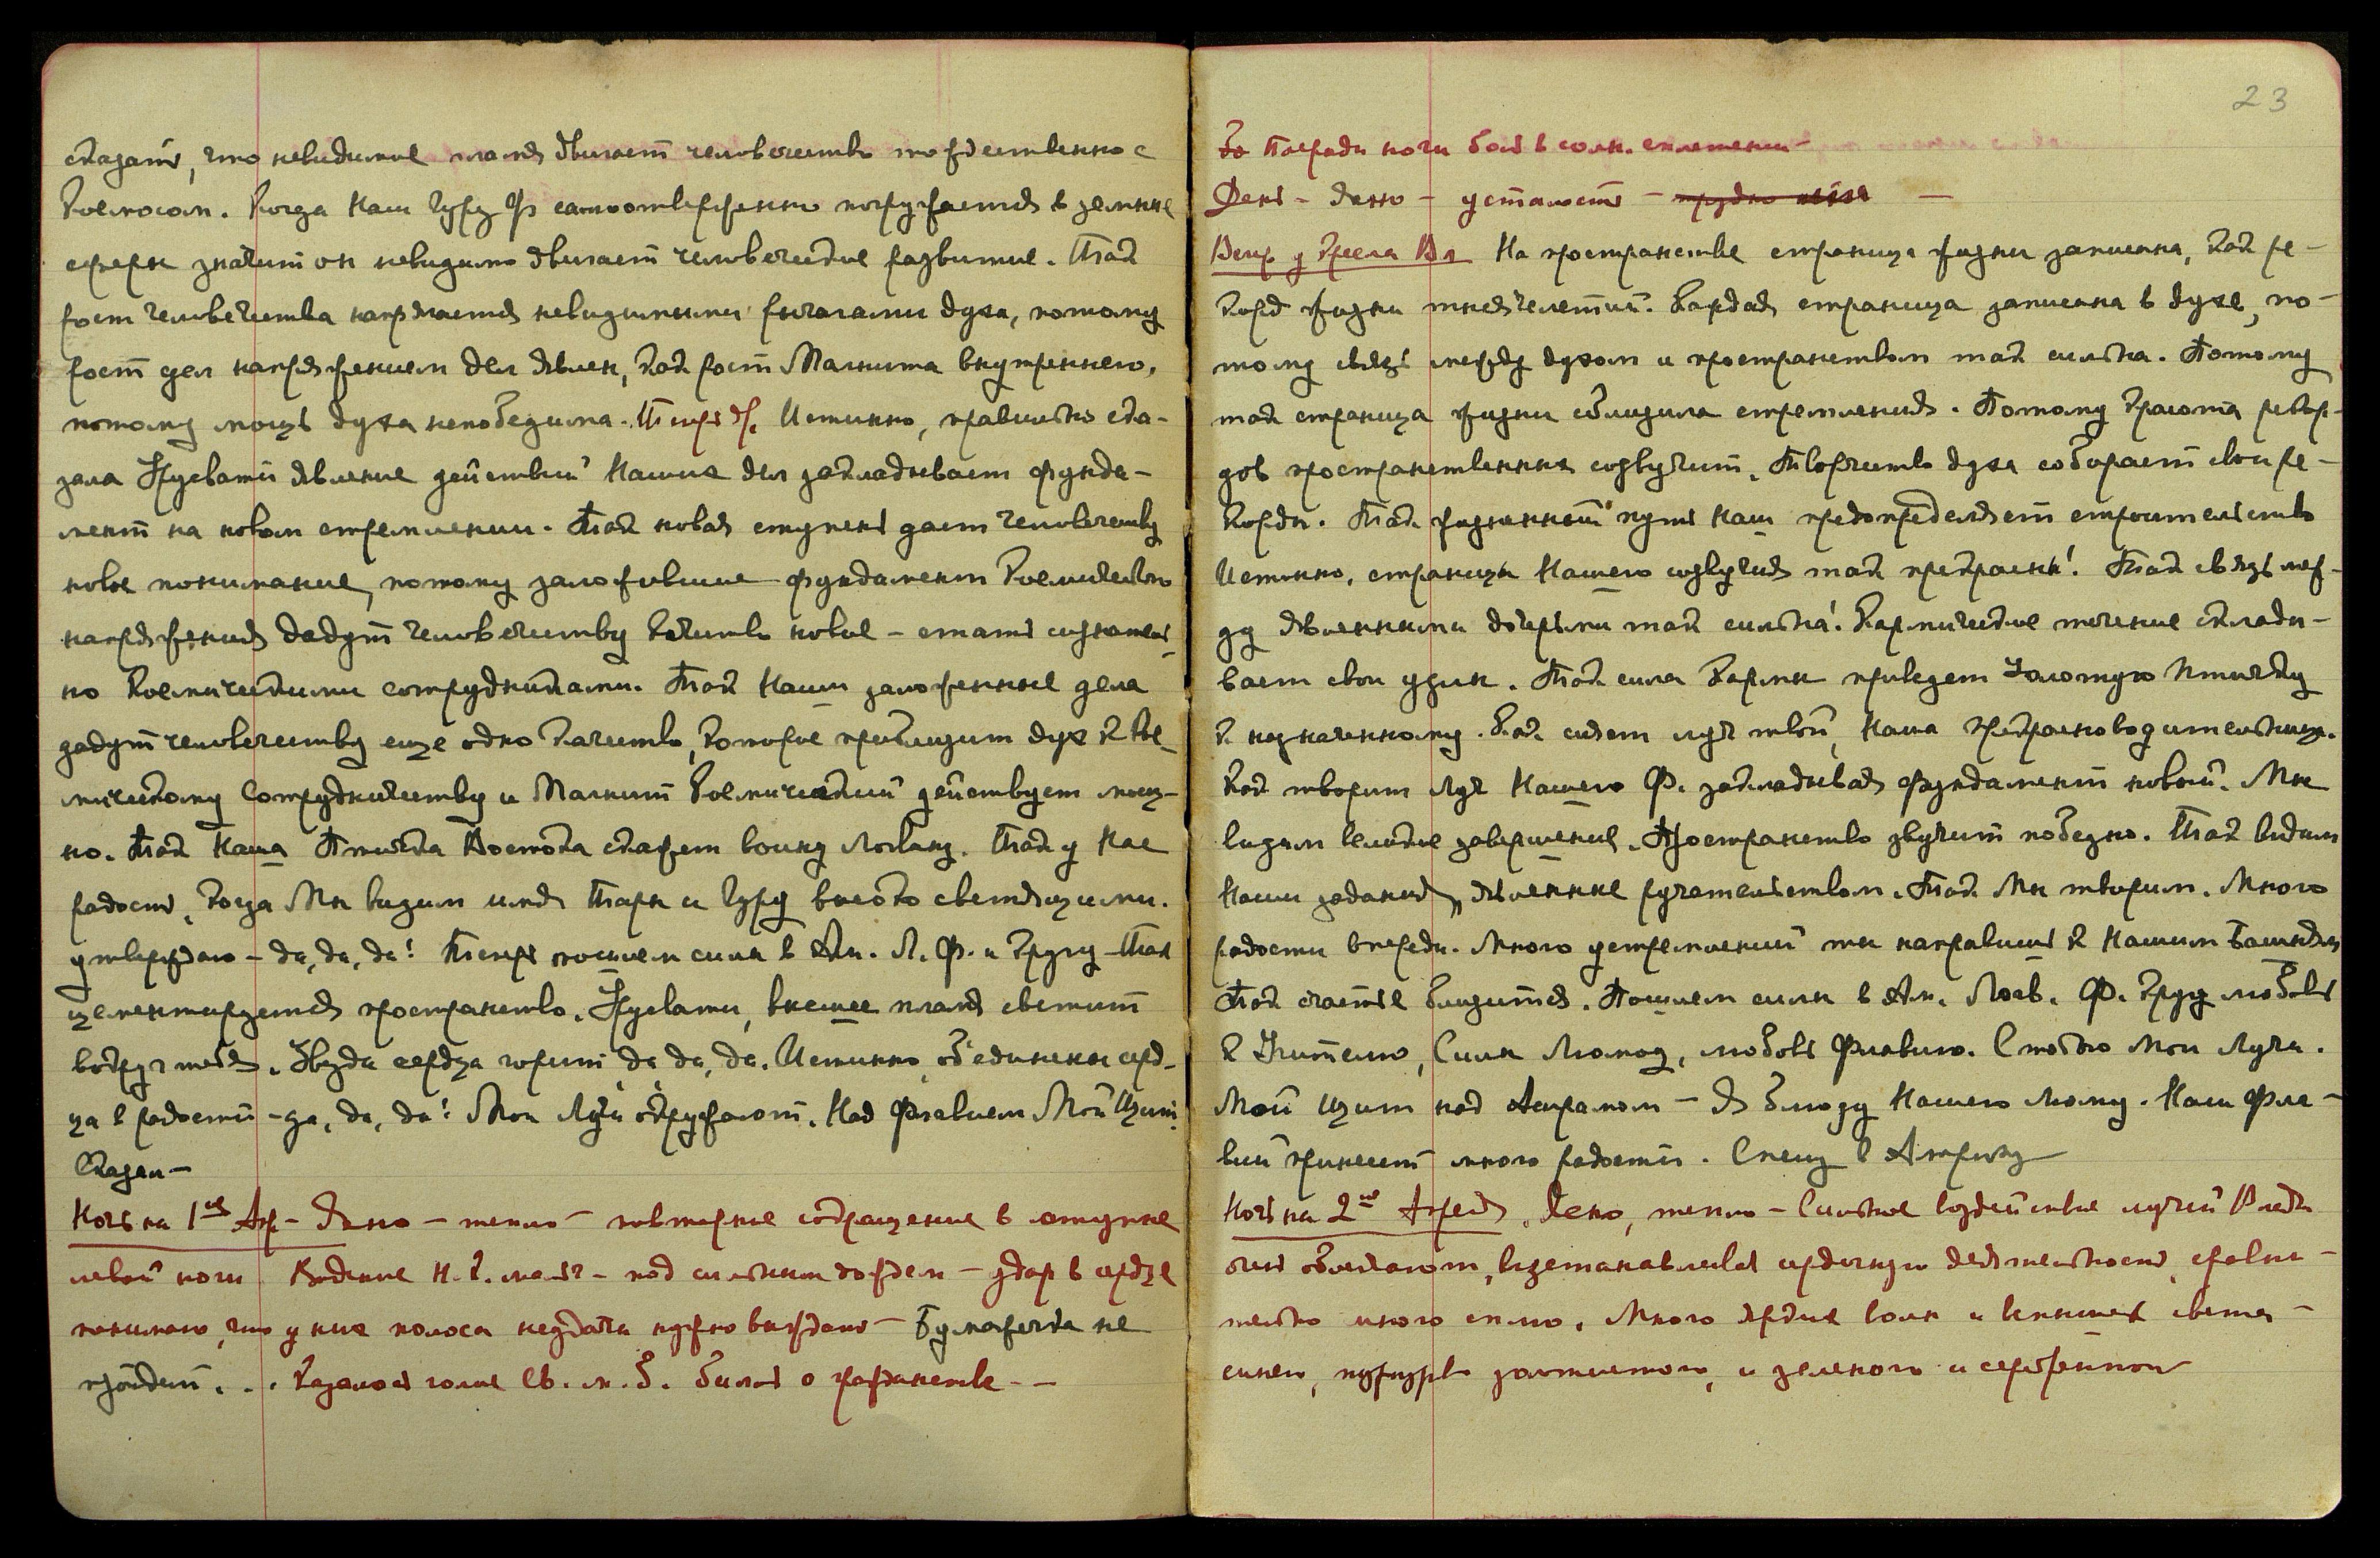 сказать, что невидимое пламя двигает человечество тождественно с
Космосом. Когда Наш Гуру Ф самоотверженно погружается в земные
сферы значит он невидимо двигает человеческое развитие. Так
рост человечества напрягается невидимыми рычагами духа, потому
рост дел напряжением дел явлен, как рост Магнита внутреннего,
потому мощь духа непобедима. Теперь др. Истинно, правильно ска-
зала Урусвати явление действий Наших дел закладывает фунда-
мент на новом стремлении. Так новая ступень дает человечеству
новое понимание, потому заложившие фундамент Космического
напряжения дадут человечеству качество новое – стать сознатель-
но Космическими сотрудниками. Так Наши заложенные дела
дадут человечеству еще одно качество, которое приблизит дух к Кос-
мическому Сотрудничеству и Магнит Космический действует мощ-
но. Так Наша Птичка Востока скажет воину Логвану. Так у Нас
радость, когда Мы видим имя Тары и Гуру высоко светящими.
утверждаю – да, да, да! Теперь пошлем силы в Ам. Л. Ф. и Кругу – Так
цементируется пространство. Урусвати, высшее пламя светит
вокруг тебя. Звезда сердца горит, да, да, да. Истинно, объединены серд-
ца в радости – да, да, да! Мои Лучи окружают. Над Флавием Мой Щит.
Сказал –
Ночь на 1ое Ап – Ясно – тепло – повторное сокращение в ступне
левой ноги. Видение Н. К. – под сильным дождем – удар в сердце
понимаю, что у них полоса неудачи нужно выждать – Бумажечка не
пройдет... Казалось голос Св. м. б. билось о
23
Посреди ночи боль в солн. сплетении –
День – ясно – усталость – трудно –
Вечер у Кресла Вл На пространстве страница жизни записана, как ре-
корд жизни тысячелетий. Каждая страница записана в духе, по-
тому связь между духом и пространством так сильна. Потому
так страница жизни сблизила стремления. Потому красота рекор-
дов пространственных созвучит. Творчество духа собирает свои ре-
корды. Так жизненный путь Наш предопределяет строительство
Истинно, страницы Нашего созвучия так прекрасны! Так связь меж-
ду явленными дочерьми так сильна! Кармическое течение склады-
вает свои узлы. Так сила Кармы приведет Золотую Птичку
к назначенному. Как сияет луч твой, Наша Прекрасноводительница.
Как творит Луч Нашего Ф. закладывая фундамент новый. Мы
видим великое завершение. Пространство звучит победно. Так видим
Наши задания, явленные ручательством. Так Мы творим. Много
радости впереди. Много устремлений ты направишь к Нашим Башням
Так счастье близится. Пошлем силы в Ам. Логв. Ф. Кругу любовь
к Учителю, Силы Люмоу, любовь Флавию. С тобою Мои Лучи.
Мой Щит над Ашрамом – Я блюду Нашего Люмоу. Наш Фла-
вий принесет много радости. Спешу в Америку
Ночь на 2ое Апреля. Ясно, тепло – Сильное воздействие лучей Влады
очень облегчают, восстанавливая сердечную деятельность, сравни-
тельно много спала. Много ярких волн и вспышек света –
синего, пурпурно золотистого, и зеленого и серебряного